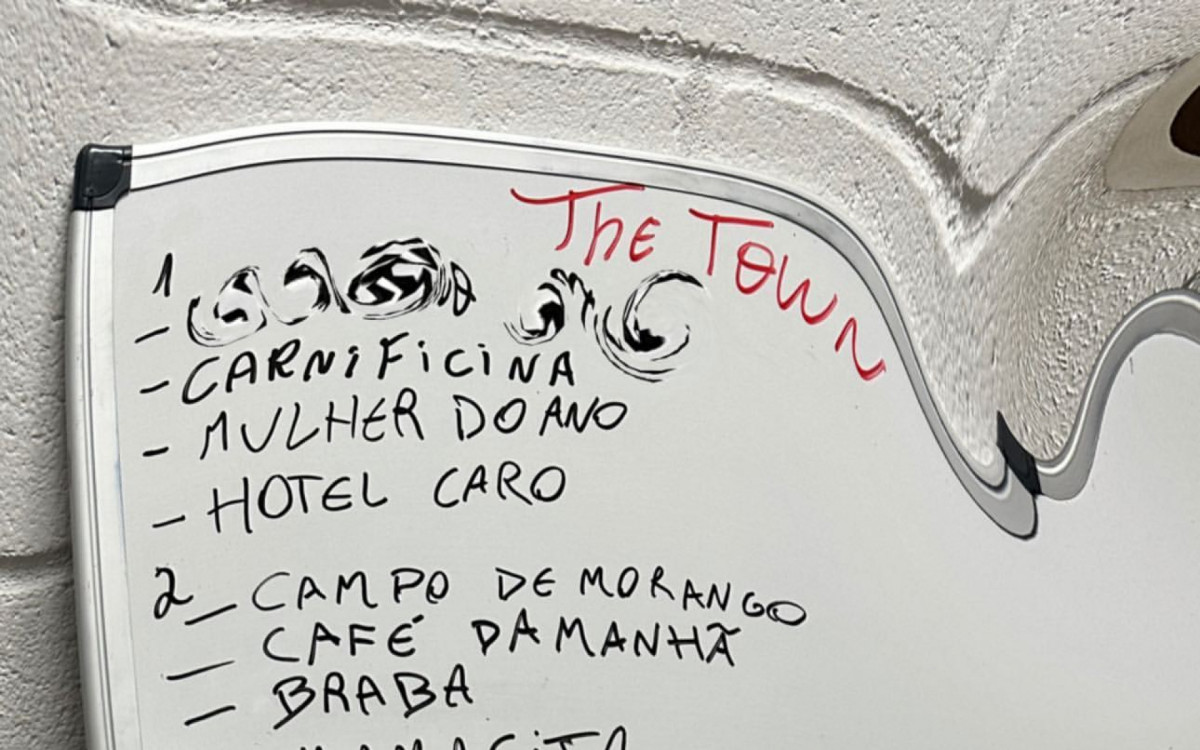 The Town
1
-
- CARNIFICINA
- MULHER DO ANO
- HOTEL CARO
2 - CAMPO DE MORANGO
- CAFÉ DA MANHÃ
- BRABA